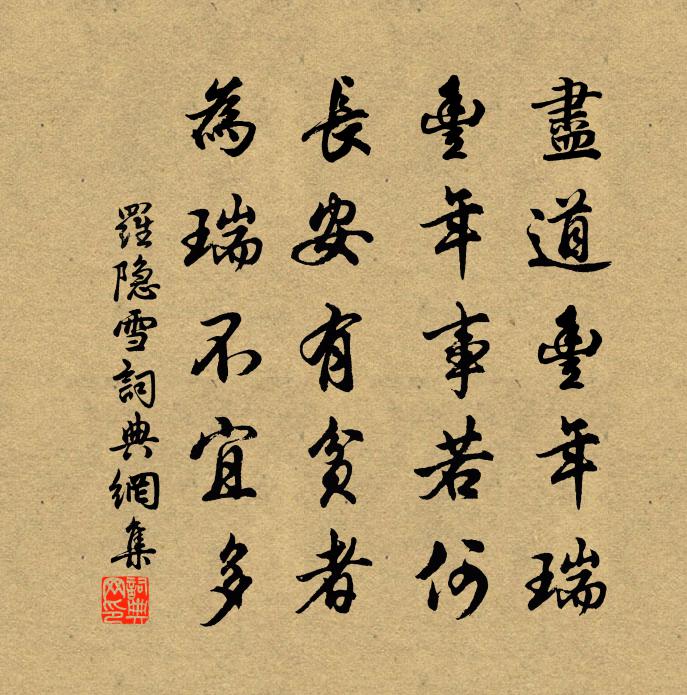 盡道豐年瑞
豐年事若何
長安有貧者
為瑞不宜多
羅隐雪詞典網集
詞典网印